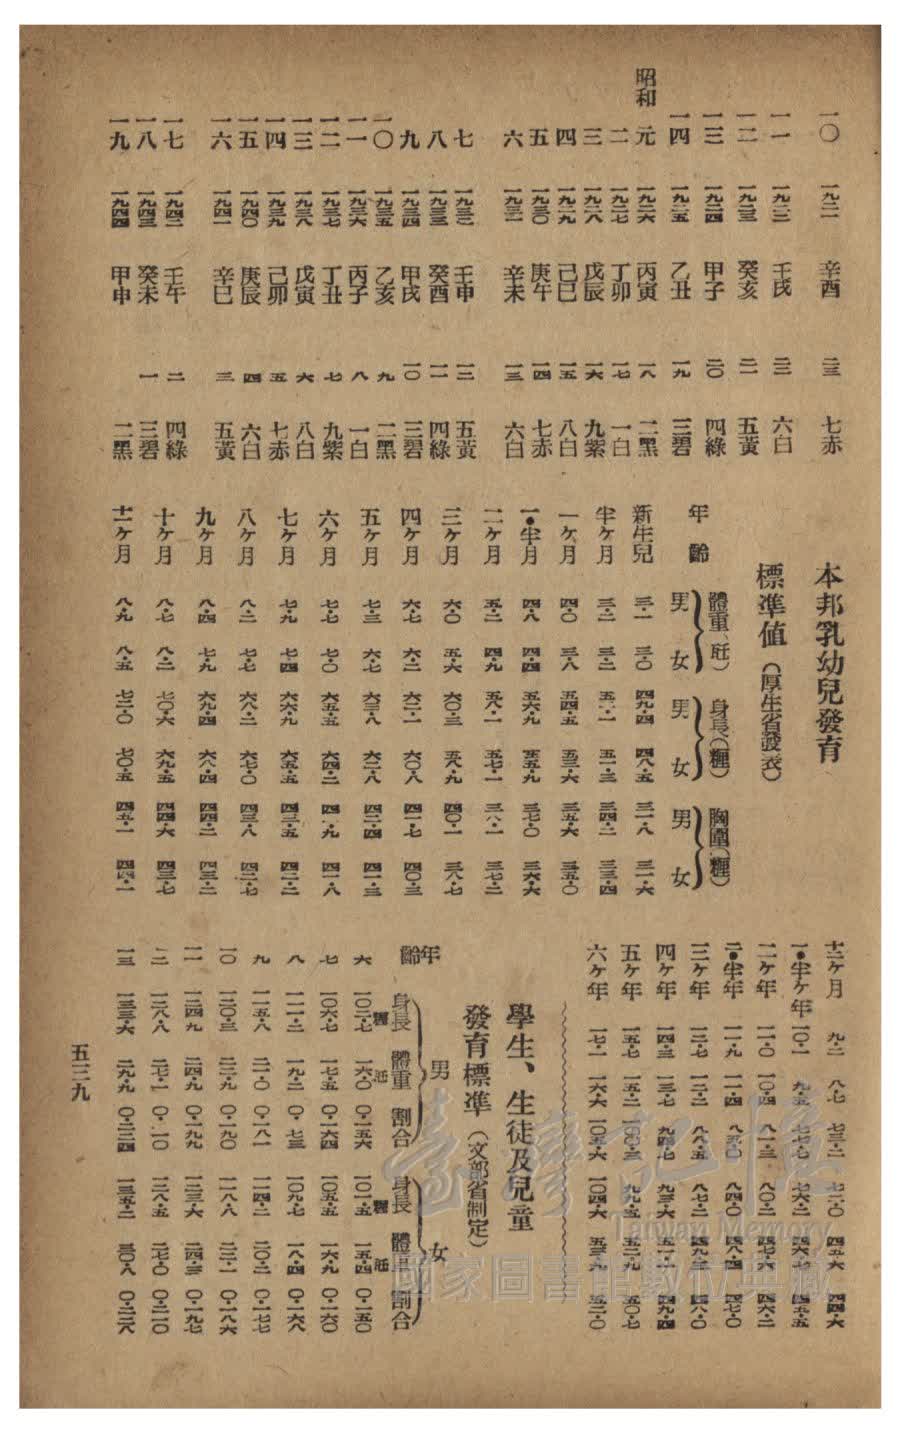 一〇 一九二一 辛酉 二三 七赤
一一 一九二二 壬戌 二二 六白
一二 一九二三 癸亥 二一 五黃
一三 一九二四 甲子 二〇 四綠
一四 一九二五 乙丑 一九 三碧
昭和元 一九二六 丙寅 一八 二黑
二 一九二七 丁卯 一七 一白
三 一九二八 戊辰 一六 九紫
四 一九二九 己巳 一五 八白
五 一九三〇 庚午 一四 七赤
六 一九三一 辛未 一三 六白
七 一九三二 壬申 一二 五黃
八 一九三三 癸酉 一一 四綠
九 一九三四 甲戌 一〇 三碧
一〇 一九三五 乙亥 九 二黑
一一 一九三六 丙子 八 一白
一二 一九三七 丁丑 七 九紫
一三 一九三八 戊寅 六 八白
一四 一九三九 己卯 五 七赤
一五 一九四〇 庚辰 四 六白
一六 一九四一 辛巳 三 五黃
一七 一九四二 壬午 二 四綠
一八 一九四三 癸未 一 三碧
一九 一九四四 甲申 二黑
本邦乳幼兒發育
標準値(厚生省發表)
年齡 體重(瓩)男女 身長(糎)男女 胸圍(糎)男女
新生兒 三・一 三・〇 四九・四 四八・五 三一・八 三一・六
半ケ月 三・二 三・二 五一・一 五一・三 三四・二 三三・四
一ケ月 四・〇 三・八 五四・五 五三・六 三五・六 三五・〇
一・半月 四・八 四・四 五六・九 五五・九 三七・〇 三六・六
二ケ月 五・二 四・九 五八・一 五七・一 三八・一 三七・二
三ケ月 六・〇 五・六 六〇・三 五八・九 四〇・一 三八・七
四ケ月 六・七 六・二 六二・一 六〇・八 四一・七 四〇・三
五ケ月 七・三 六・七 六三・八 六二・八 四二・四 四一・三
六ケ月 七・七 七・〇 六五・五 六四・二 四一・九 四一・八
七ケ月 七・九 七・四 六六・九 六五・五 四三・五 四二・二
八ケ月 八・二 七・七 六八・二 六七・〇 四三・八 四二・七
九ケ月 八・四 七・九 六九・四 六八・四 四四・二 四三・二
十ケ月 八・七 八・二 七〇・六 六九・五 四四・六 四三・七
十一ケ月 八・九 八・五 七二・〇 七〇・五 四五・一 四四・一
十二ケ月 九・二 八・七 七三・二 七二・〇 四五・六 四四・六
一・半ケ年 一〇・一 九・五 七七・七 七六・二 四六・七 四五・五
二ケ年 一一・〇 一〇・四 八一・三 八〇・二 四七・六 四六・二
二・半年 一一・九 一一・四 八五・〇 八四・〇 四八・四 四七・〇
三ケ年 一二・七 一二・二 八八・五 八七・二 四九・三 四八・〇
四ケ年 一四・三 一三・七 九四・七 九三・六 五一・一 四九・四
五ケ年 一五・七 一五・二 一〇〇・三 九九・五 五二・九 五〇・七
六ケ年 一七・一 一六・六 一〇五・六 一〇四・六 五三・九 五二・〇
學生、生徒及兒童
發育標準(文部省制定)
男 女
年齡 身長 糎 體重 瓩 割合 身長 糎 體重 瓩 割合
六 一〇二・七 一六・〇 〇・一五六 一〇一・五 一五・四 〇・一五〇
七 一〇六・七 一七・五 〇・一六四 一〇五・五 一六・九 〇・一六〇
八 一一一・二 一九・二 〇・一七三 一〇九・七 一八・四 〇・一六八
九 一一五・八 二一・〇 〇・一八一 一一四・二 二〇・二 〇・一七七
一〇 一二〇・三 二二・九 〇・一九〇 一一八・八 二二・一 〇・一八六
一一 一二四・九 二四・九 〇・一九九 一二三・六 二四・三 〇・一九七
一二 一二八・八 二七・一 〇・二一〇 一二八・五 二七・〇 〇・二一〇
一三 一三三・六 二九・九 〇・二二四 一三五・二 三〇・八 〇・二二八
五三九
臺灣記憶
Taiwan Memory
國家圖書館數位典藏